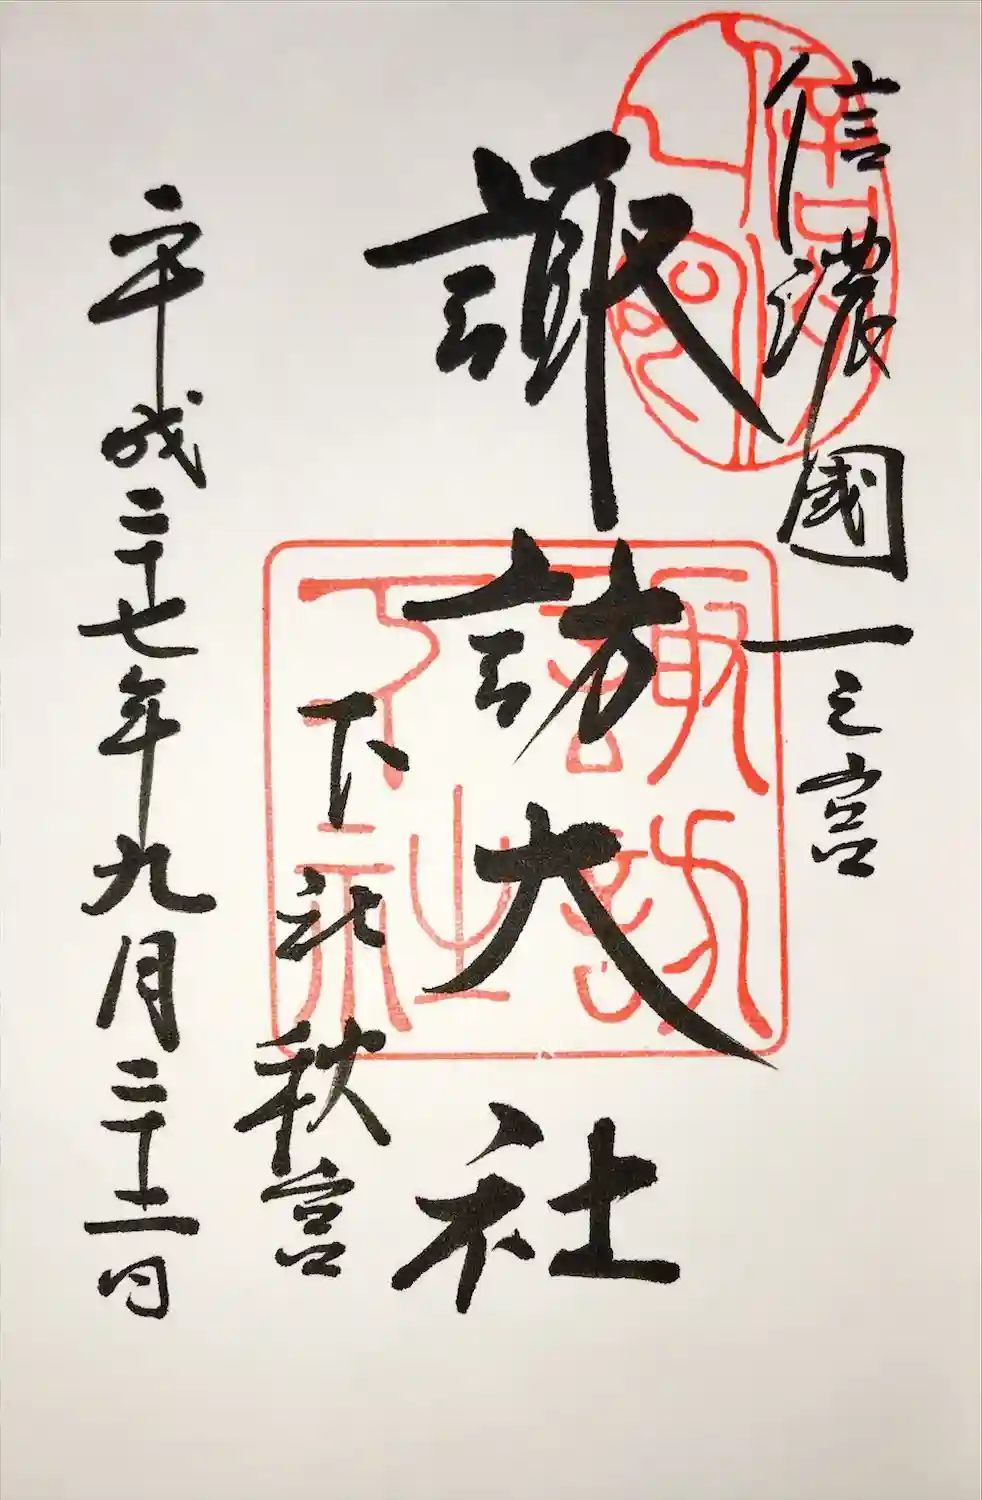 信濃國一之宮
諏訪大社
下社秋宮
平成二十七年九月二十二日
諏訪
下社